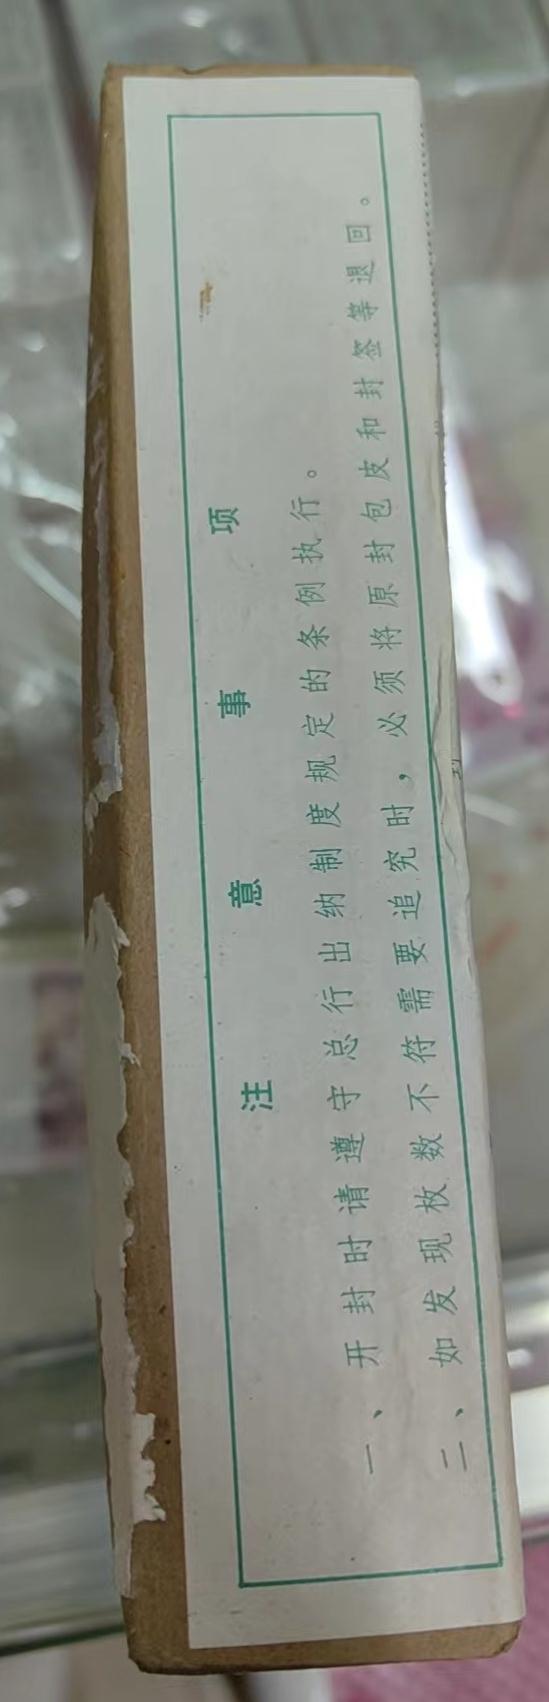 注意事项
一、开封时请遵守总行出纳制度规定的条例执行。
二、如发现枚数不符需要追究时，必须将原封包皮和封签等退回。